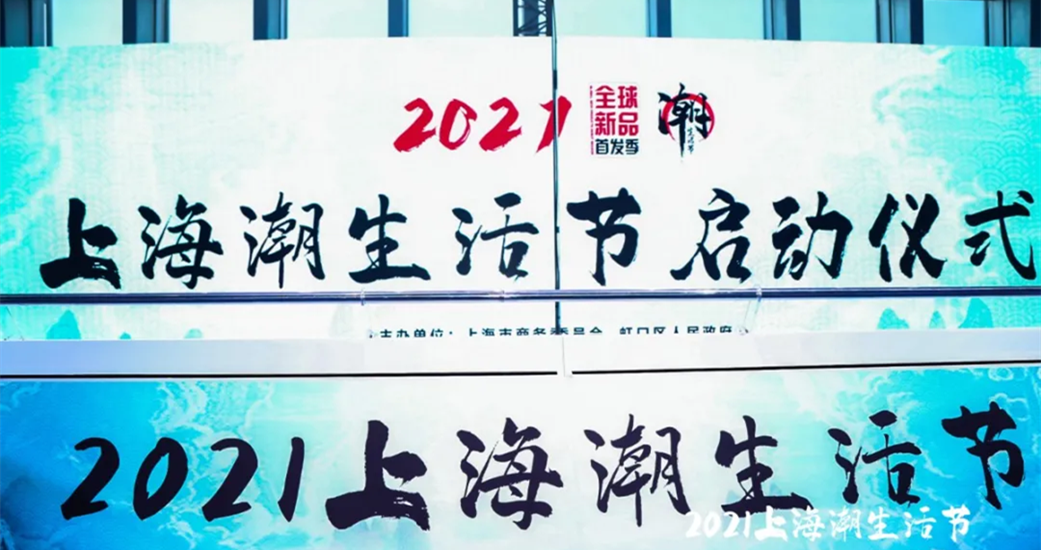 2021
全球
新品
首发季
潮
生活节
上海潮生活节启动仪式
主办单位：上海市商务委员会 虹口区人民政府
2021上海潮生活节
2021上海潮生活节